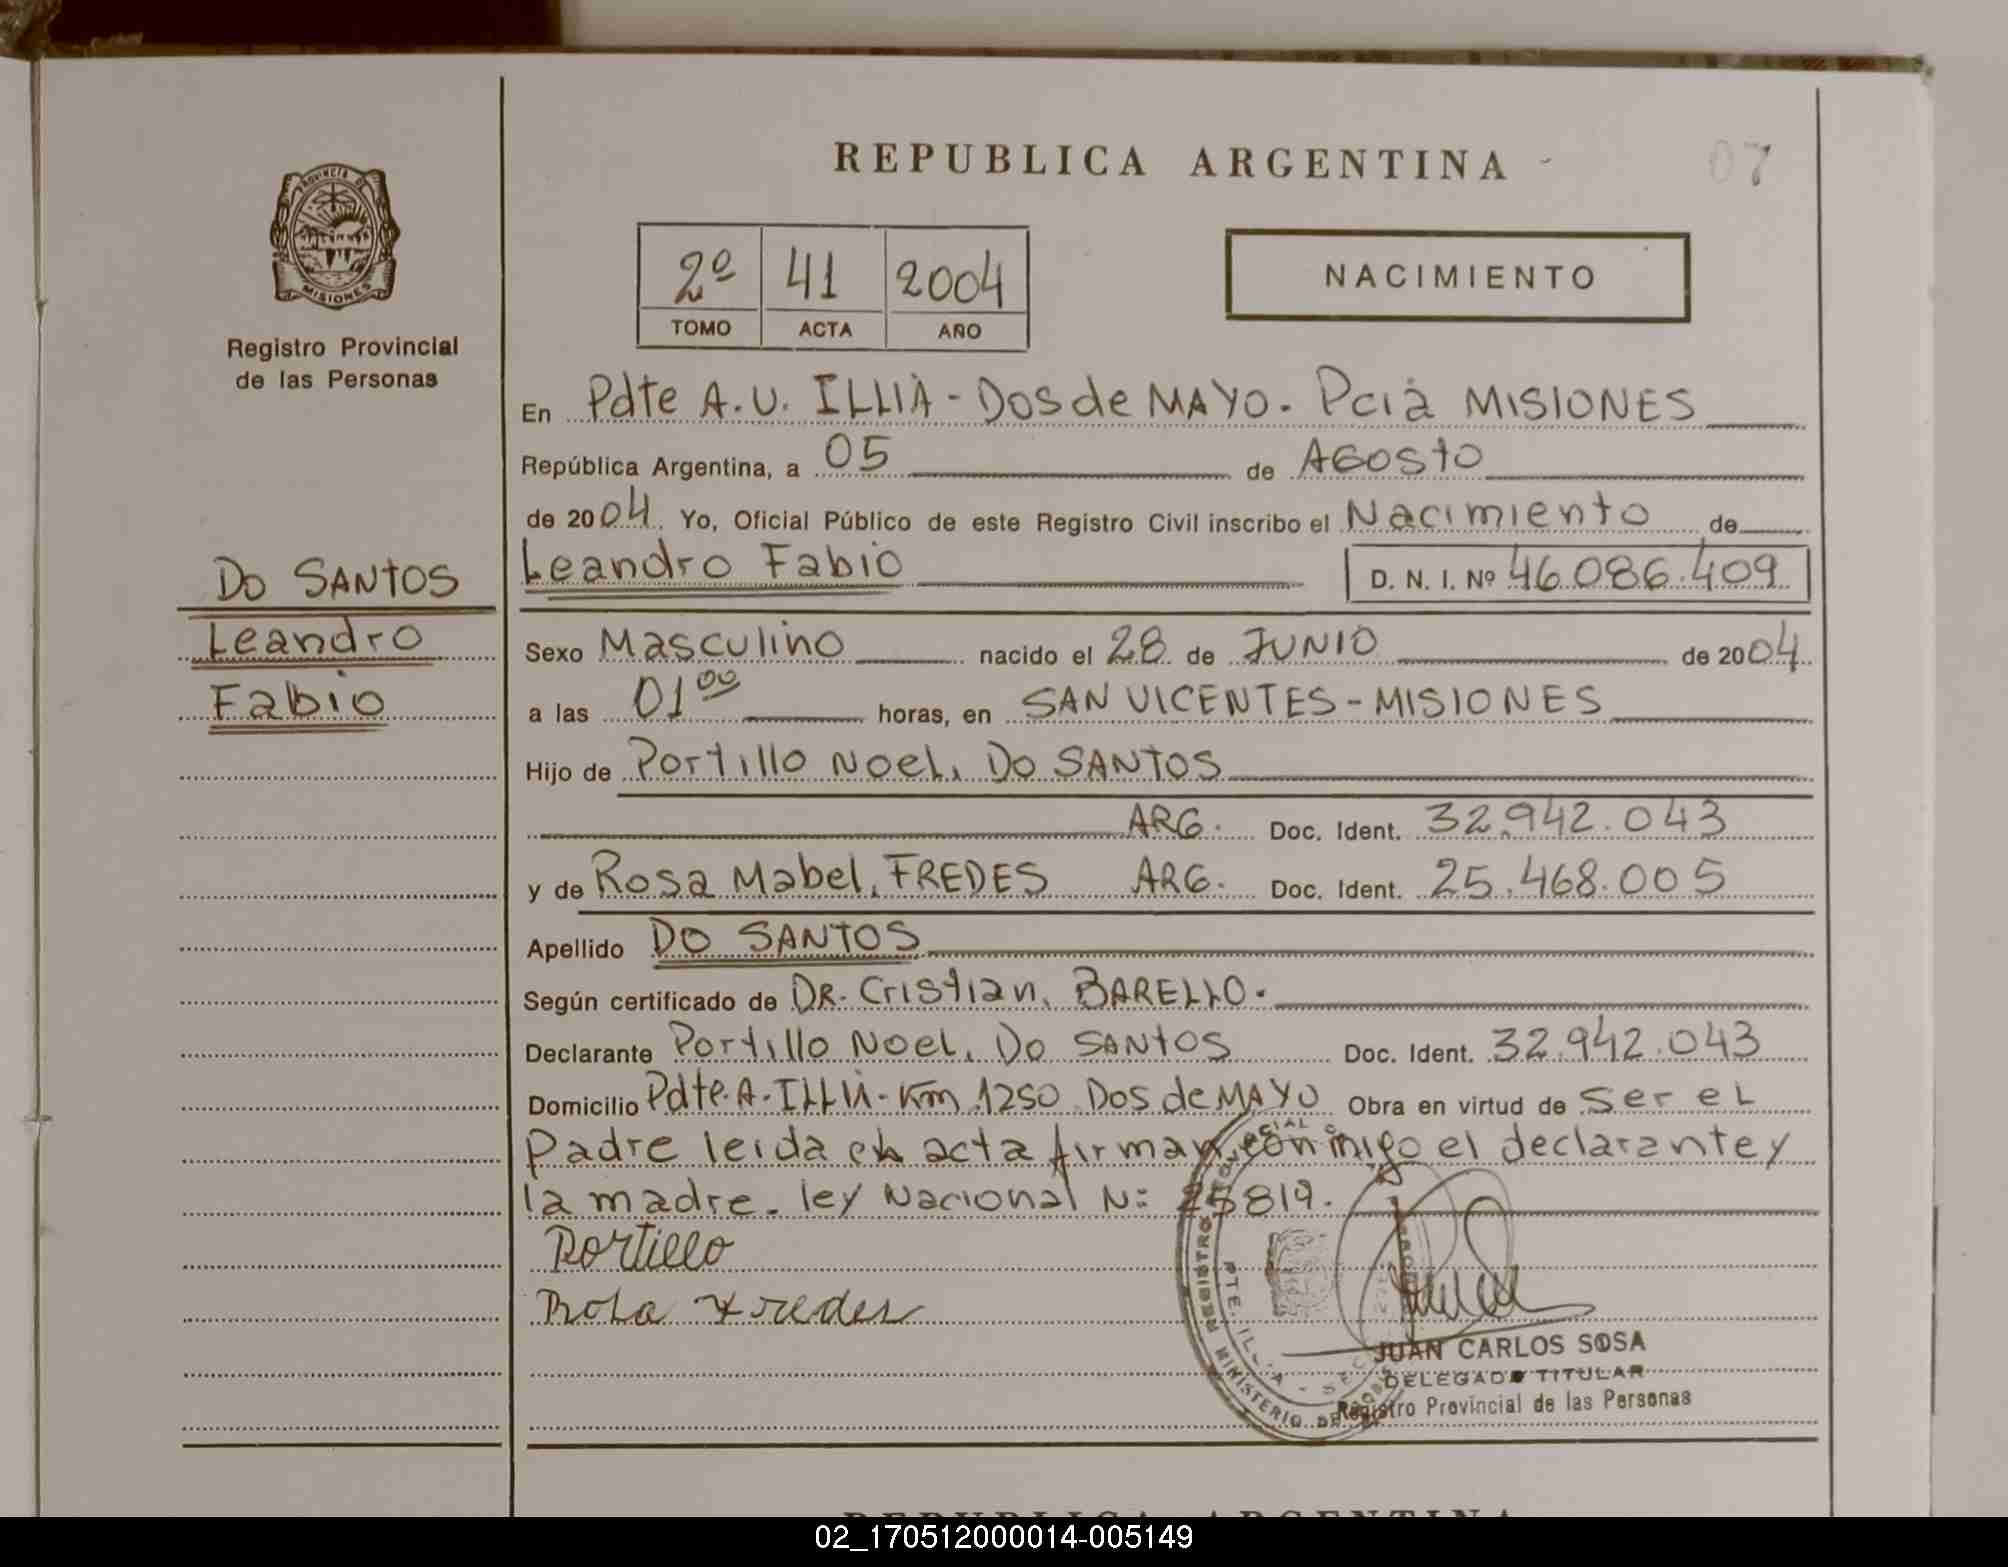 REPUBLICA ARGENTINA
07
PROVINCIA DE
MISIONES
Registro Provincial
de las Personas
2º 41 2004
TOMO ACTA AÑO
NACIMIENTO
En Pdte A.U. ILLIA - Dos de MAYO. Pcia MISIONES
República Argentina, a 05 de AGOSTO
de 2004. Yo, Oficial Público de este Registro Civil inscribo el Nacimiento de
Leandro Fabio D. N. I. Nº 46.086.409
DO SANTOS
Leandro
Fabio
Sexo Masculino nacido el 28 de JUNIO de 2004.
a las 01 00 horas, en SAN VICENTES - MISIONES
Hijo de Portillo Noel, DO SANTOS
ARG. Doc. Ident. 32.942.043
y de Rosa Mabel, FREDES ARG. Doc. Ident. 25.468.005
Apellido DO SANTOS
Según certificado de DR. Cristian, BARELLO.
Declarante Portillo Noel, Do SANTOS Doc. Ident. 32.942.043
Domicilio Pdte. A. ILLIA - Km 1250 Dos de MAYO Obra en virtud de Ser el
padre leida el acta firman conmigo el declarante y
la madre. ley Nacional N: 25819.
Portillo
Rosa Fredes
JUAN CARLOS SOSA
DELEGADO TITULAR
Registro Provincial de las Personas
REPUBLICA ARGENTINA
02_170512000014-005149